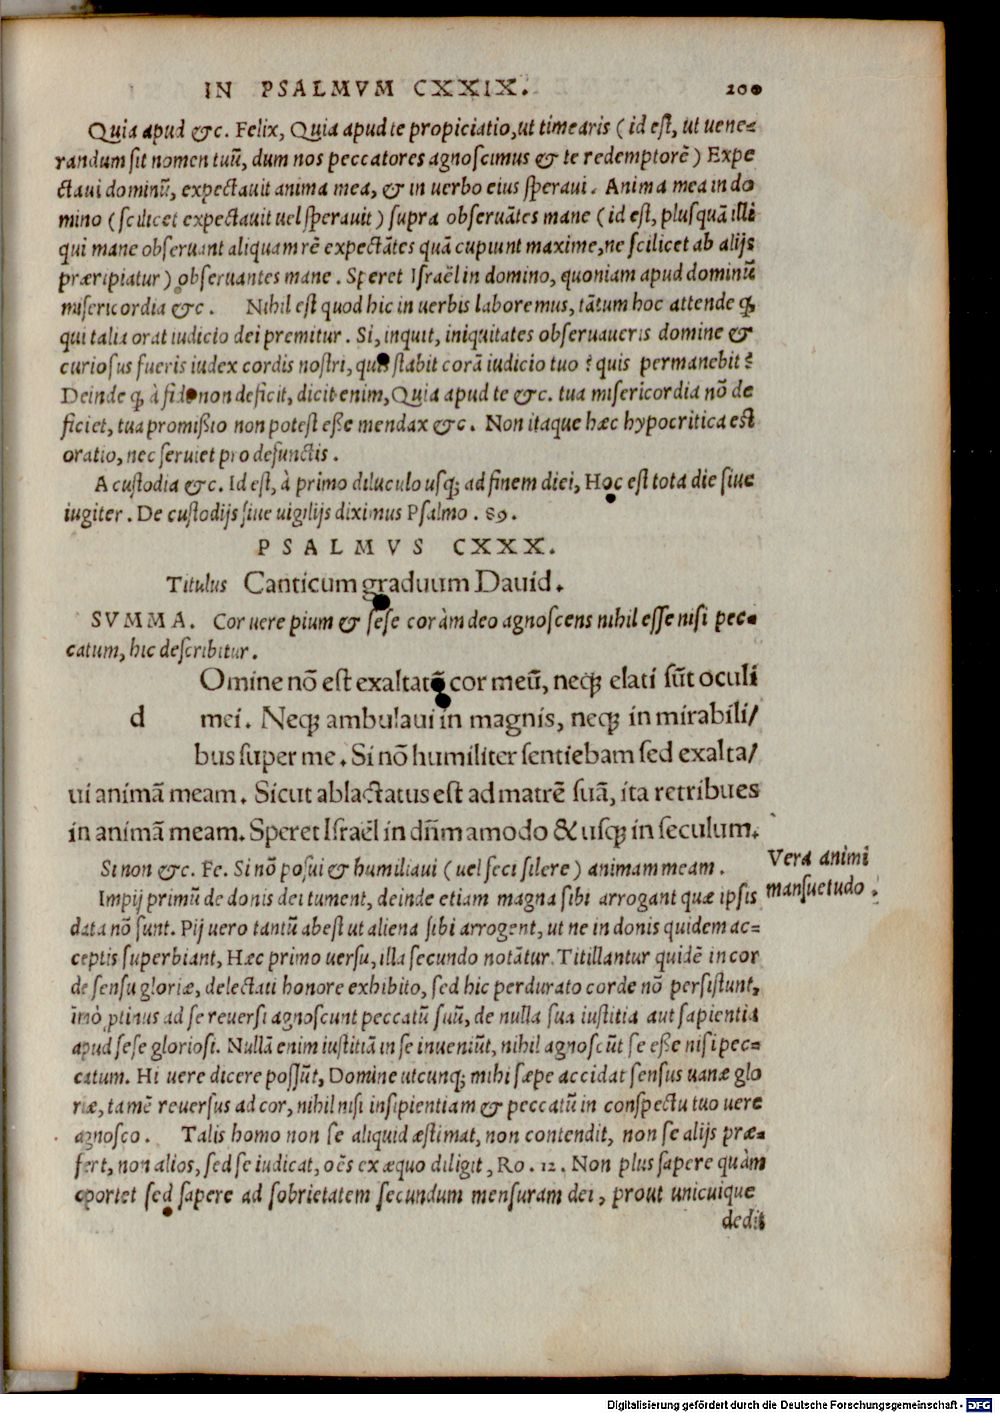 IN PSALMVM CXXIX. 200
Quia apud &c. Felix, Quia apud te propiciatio, ut timearis (id est, ut uene=
randum sit nomen tuũ, dum nos peccatores agnoscimus & te redemptorẽ) Expe
ctaui dominũ, expectauit anima mea, & in uerbo eius speraui. Anima mea in do
mino (scilicet expectauit uel sperauit) supra obseruãtes mane (id est, plusquã illi
qui mane obseruant aliquam rẽ expectãtes quã cupiunt maxime, ne scilicet ab alijs
præripiatur) obseruantes mane. Speret Israël in domino, quoniam apud dominũ
misericordia &c. Nihil est quod hic in uerbis laboremus, tãtum hoc attende ꝙ
qui talia orat iudicio dei premitur. Si, inquit, iniquitates obseruaueris domine &
curiosus fueris iudex cordis nostri, quis stabit corã iudicio tuo? quis permanebit?
Deinde ꝙ à fide non deficit, dicit enim, Quia apud te &c. tua misericordia nõ de
ficiet, tua promißio non potest eße mendax &c. Non itaque hæc hypocritica est
oratio, nec seruiet pro defunctis.
A custodia &c. Id est, à primo diluculo usq; ad finem diei, Hoc est tota die siue
iugiter. De custodijs siue uigilijs diximus Psalmo. 89.
PSALMVS CXXX.
Titulus Canticum graduum Dauid.
SVMMA. Cor uere pium & sese coràm deo agnoscens nihil esse nisi pec=
catum, hic describitur.
Omine nõ est exaltatũ cor meũ, neq; elati sũt oculi
d mei. Neq; ambulaui in magnis, neq; in mirabili/
bus super me. Si nõ humiliter sentiebam sed exalta/
ui animã meam. Sicut ablactatus est ad matrẽ suã, ita retribues
in animã meam. Speret Israël in dñm amodo & usq; in seculum.
Si non &c. Fe. Si nõ posui & humiliaui (uel feci silere) animam meam.
Vera animi
mansuetudo.
Impij primũ de donis dei tument, deinde etiam magna sibi arrogant quæ ipsis
data nõ sunt. Pij uero tantũ abest ut aliena sibi arrogent, ut ne in donis quidem ac=
ceptis superbiant, Hæc primo uersu, illa secundo notãtur. Titillantur quidẽ in cor
de sensu gloriæ, delectati honore exhibito, sed hic perdurato corde nõ persistunt,
imò ꝓtinus ad se reuersi agnoscunt peccatũ suũ, de nulla sua iustitia aut sapientia
apud sese gloriosi. Nullã enim iustitiã in se inueniũt, nihil agnoscũt se eße nisi pec=
catum. Hi uere dicere possũt, Domine utcunq; mihi sæpe accidat sensus uanæ glo
riæ, tamẽ reuersus ad cor, nihil nisi insipientiam & peccatũ in conspectu tuo uere
agnosco. Talis homo non se aliquid æstimat, non contendit, non se alijs præ=
fert, non alios, sed se iudicat, oẽs ex æquo diligit, Ro. 12. Non plus sapere quàm
oportet sed sapere ad sobrietatem secundum mensuram dei, prout unicuique
dedit
Digitalisierung gefördert durch die Deutsche Forschungsgemeinschaft - DFG